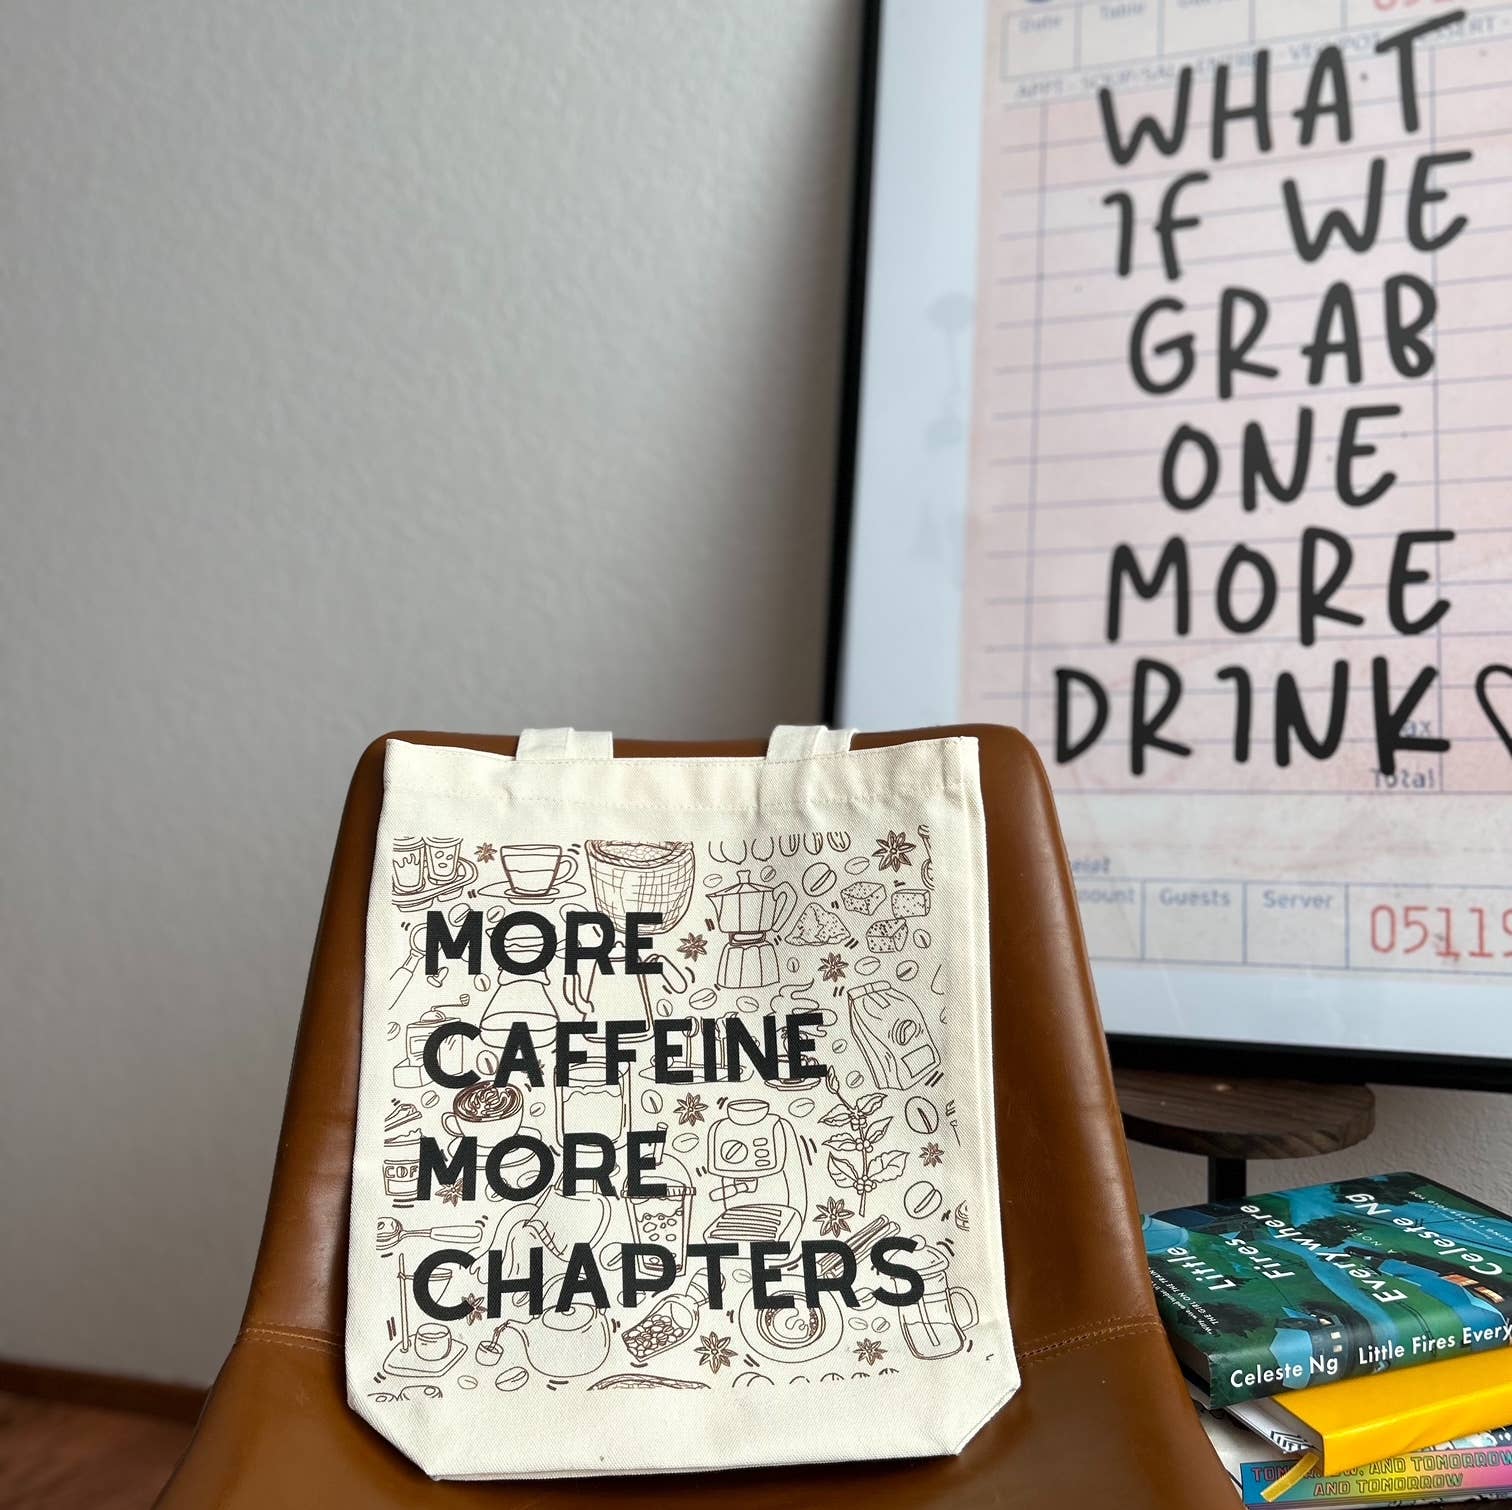 Date Table
WHAT
IF WE
GRAB
ONE
MORE
DRINK
Total
Guests Server
MORE
CAFFEINE
MORE
CHAPTERS
Little
Fires
Everywhere
A NOVEL
Celeste Ng
Celeste Ng Little Fires Every
TOMORROW, AND TOMORROW
AND TOMORROW